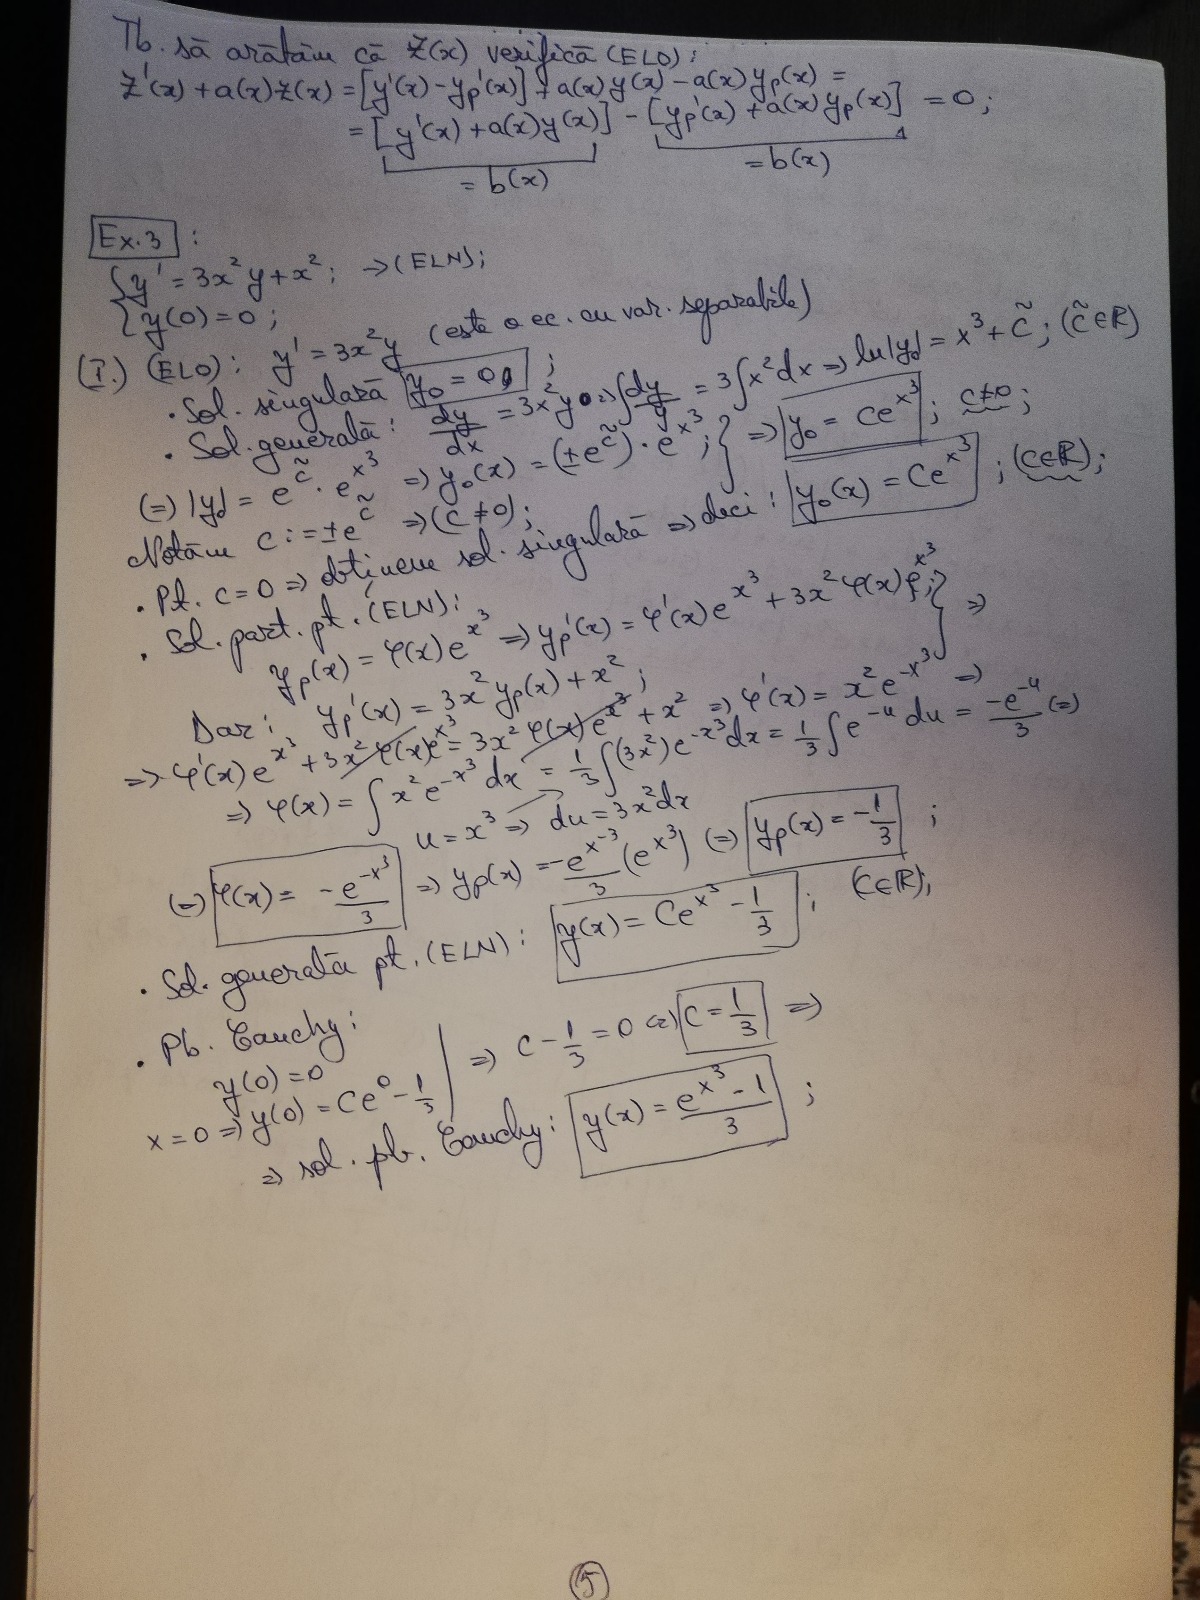 Tb. să arătăm că z(x) verifică (ELO):
z'(x) + a(x)z(x) = [y'(x) - yp'(x)] + a(x)y(x) - a(x)yp(x) =
= [y'(x) + a(x)y(x)] - [yp'(x) + a(x)yp(x)] = 0;
= b(x) = b(x)
Ex.3 :
{y' = 3x²y + x²; → (ELN);
{y(0) = 0;
(I.) (ELO): y' = 3x²y (este o ec. cu var. separabile)
• Sol. singulară y₀ = 0 ;
• Sol. generală: dy/dx = 3x²y ⇒ ∫dy/y = 3∫x²dx ⇒ ln|y₀| = x³ + c̃; (c̃∈ℝ)
(⇒) |y₀| = e^c̃ · e^x³ ⇒ y₀(x) = (±e^c̃) · e^x³; } ⇒ y₀ = Ce^x³ ; C≠0 ;
Notăm C := ±e^c̃ ⇒ (C ≠ 0);
• Pt. C = 0 ⇒ obținem sol. singulară ⇒ deci: y₀(x) = Ce^x³ ; (C∈ℝ);
• Sol. part. pt. (ELN):
yp(x) = φ(x)e^x³ ⇒ yp'(x) = φ'(x)e^x³ + 3x²φ(x)e^x³; } ⇒
Dar: yp'(x) = 3x²yp(x) + x²;
⇒ φ'(x)e^x³ + 3x²φ(x)e^x³ = 3x²φ(x)e^x³ + x² ⇒ φ'(x) = x²e^-x³ ⇒
⇒ φ(x) = ∫x²e^-x³dx = 1/3∫(3x²)e^-x³dx = 1/3∫e^-u du = -e^-u/3 (=)
u = x³ ⇒ du = 3x²dx
(=) φ(x) = -e^-x³/3 ⇒ yp(x) = -e^x^-3/3 (e^x³) (=) yp(x) = -1/3 ;
• Sol. generală pt. (ELN): y(x) = Ce^x³ - 1/3 ; (C∈ℝ);
• Pb. Cauchy:
y(0) = 0
x = 0 ⇒ y(0) = Ce⁰ - 1/3 | ⇒ C - 1/3 = 0 (=) C = 1/3 ⇒
⇒ sol. pb. Cauchy: y(x) = e^x³ - 1/3 ;
5